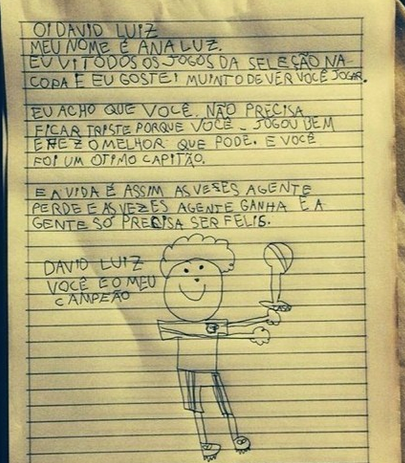 OI DAVID LUIZ
MEU NOME É ANA LUZ.
EU VI TODOS OS JOGOS DA SELEÇÃO NA
COPA E EU GOSTEI MUINTO DE VER VOCÊ JOGAR.
EU ACHO QUE VOCÊ. NÃO PRECISA
FICAR TRISTE PORQUE VOCÊ - JOGOU BEM
E FEZ O MELHOR QUE PODE. E VOCÊ
FOI UM OTIMO CAPITÃO.
E A VIDA É ASSIM AS VESES AGENTE
PERDE E AS VEZES AGENTE GANHA E A
GENTE SÓ PRECISA SER FELIS.
DAVID LUIZ
VOCÊ É O MEU
CAMPEÃO